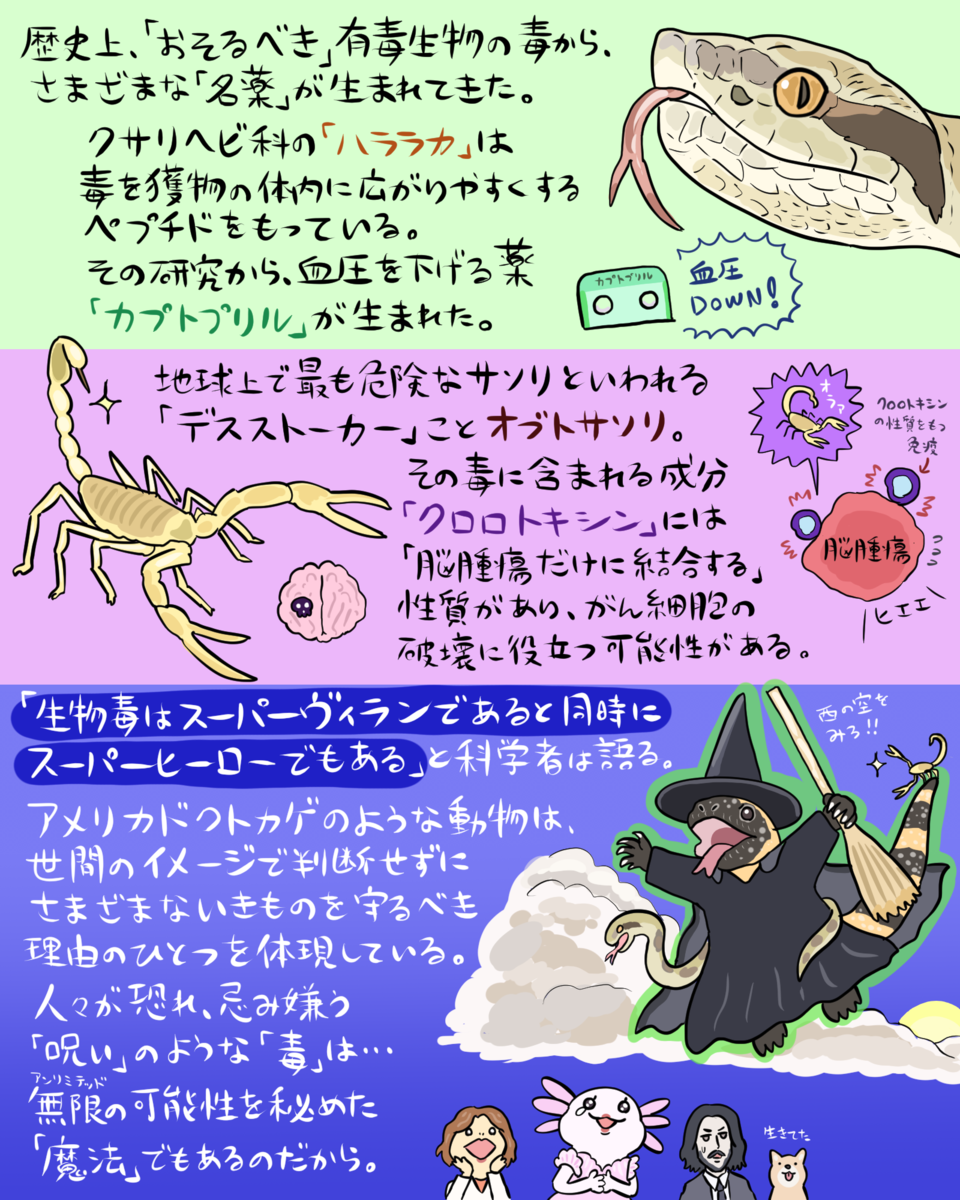 歴史上、「おそるべき」有毒生物の毒から、
さまざまな「名薬」が生まれてきた。
クサリヘビ科の「ハララカ」は
毒を獲物の体内に広がりやすくする
ペプチドをもっている。
その研究から、血圧を下げる薬
「カプトプリル」が生まれた。
カプトプリル
血圧
DOWN!
地球上で最も危険なサソリといわれる
「デスストーカー」ことオブトサソリ。
その毒に含まれる成分
「クロロトキシン」には
「脳腫瘍だけに結合する」
性質があり、がん細胞の
破壊に役立つ可能性がある。
オラァ
クロロトキシン
の性質をもつ
免疫
脳腫瘍
ヒエエ
「生物毒はスーパーヴィランであると同時に
スーパーヒーローでもある」と科学者は語る。
アメリカドクトカゲのような動物は、
世間のイメージで判断せずに
さまざまないきものを守るべき
理由のひとつを体現している。
人々が恐れ、忌み嫌う
「呪い」のような「毒」は…
アンリミテッド
無限の可能性を秘めた
「魔法」でもあるのだから。
西の空を
みろ!!
生きてた